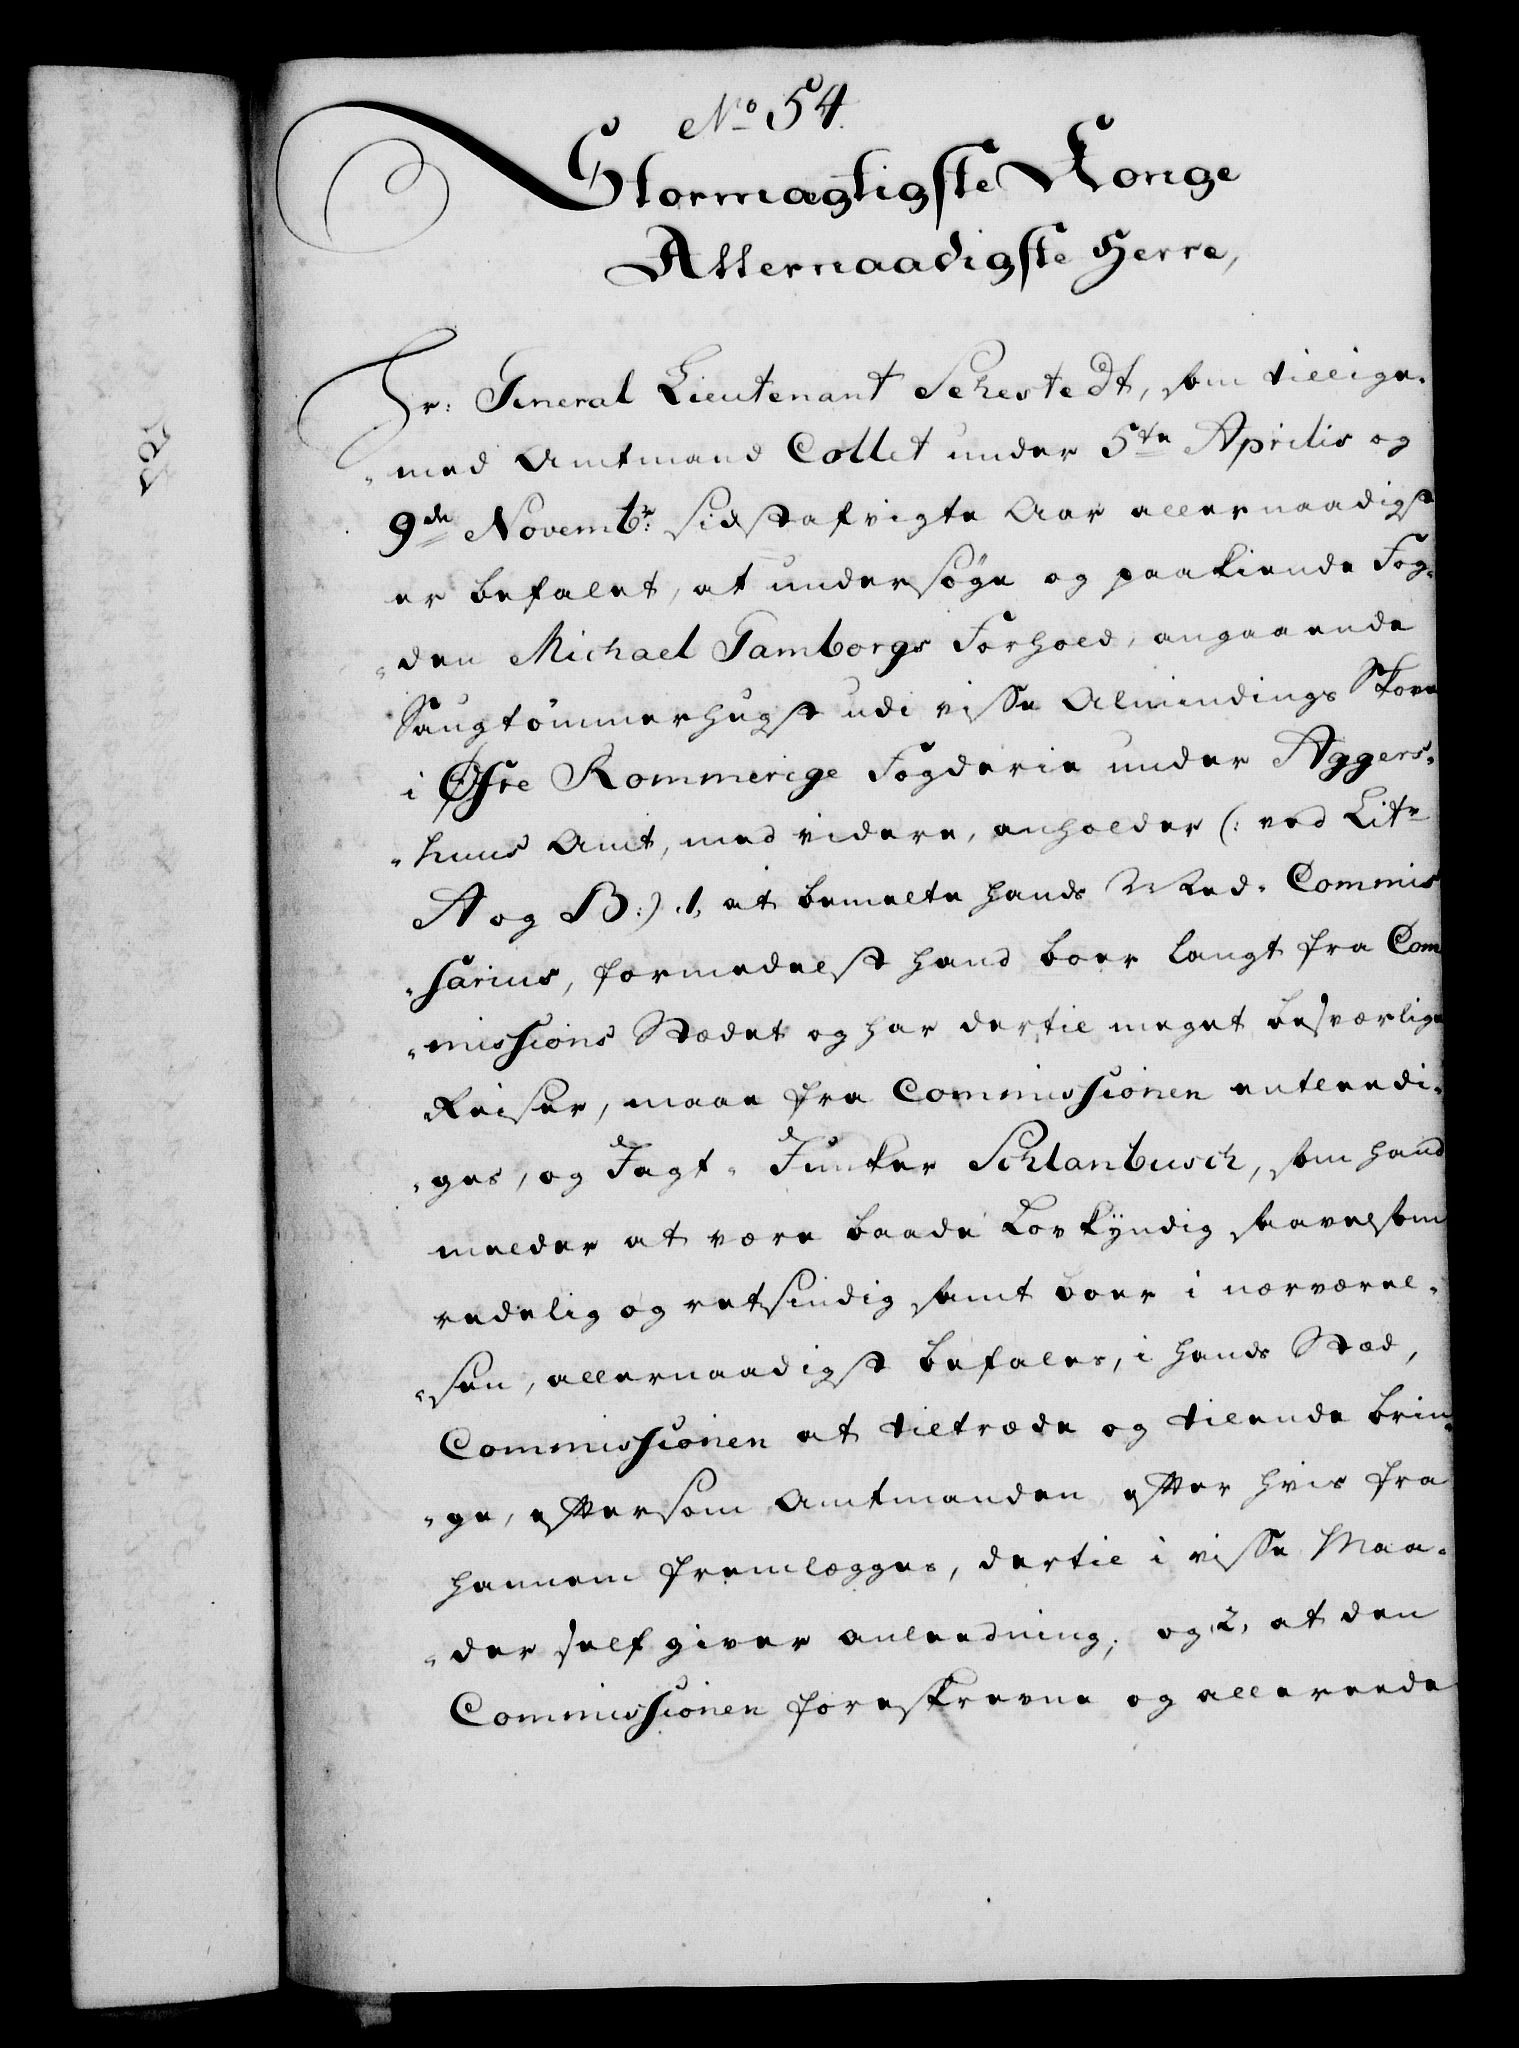 No 54.
Stormægtigste Konge
Allernaadigste Herre,
Hr: General Lieutenant Sehestedt, som tillige-
"med Amtmand Collet under 5te Aprilis og
9de Novembr: sidstafvigte Aar allernaadigst
er befalet, at undersøge og paakiende Fog-
"den Michael Tamborgs Forhold, angaaende
Saugtømmerhugst udi visse Almindings Skove
i Øfre Rommerige Fogderie under Aggers-
"huus Amt, med videre, anholder (: ved Litr
A og B:) 1, at bemelte hands Med- Commis
"sarius, formedelst hand boer langt fra Com
"missions Stædet og har dertil meget besværlige
Reiser, maae fra Commissionen entleedi-
"ges, og Jagt-Junker Schlanbusch, som hand
melder at være baade Lovkyndig saavelsom
redelig og retsindig samt boer i nærværel-
"sen, allernaadigst befales, i hands Stæd,
Commissionen at tiltræde og tilende brin-
"ge, eftersom Amtmanden efter hvis fra
hannem fremlægges, dertil i visse Maa-
"der self giver anleedning; og 2, at den
Commissionen foreskrevne og allereede
525